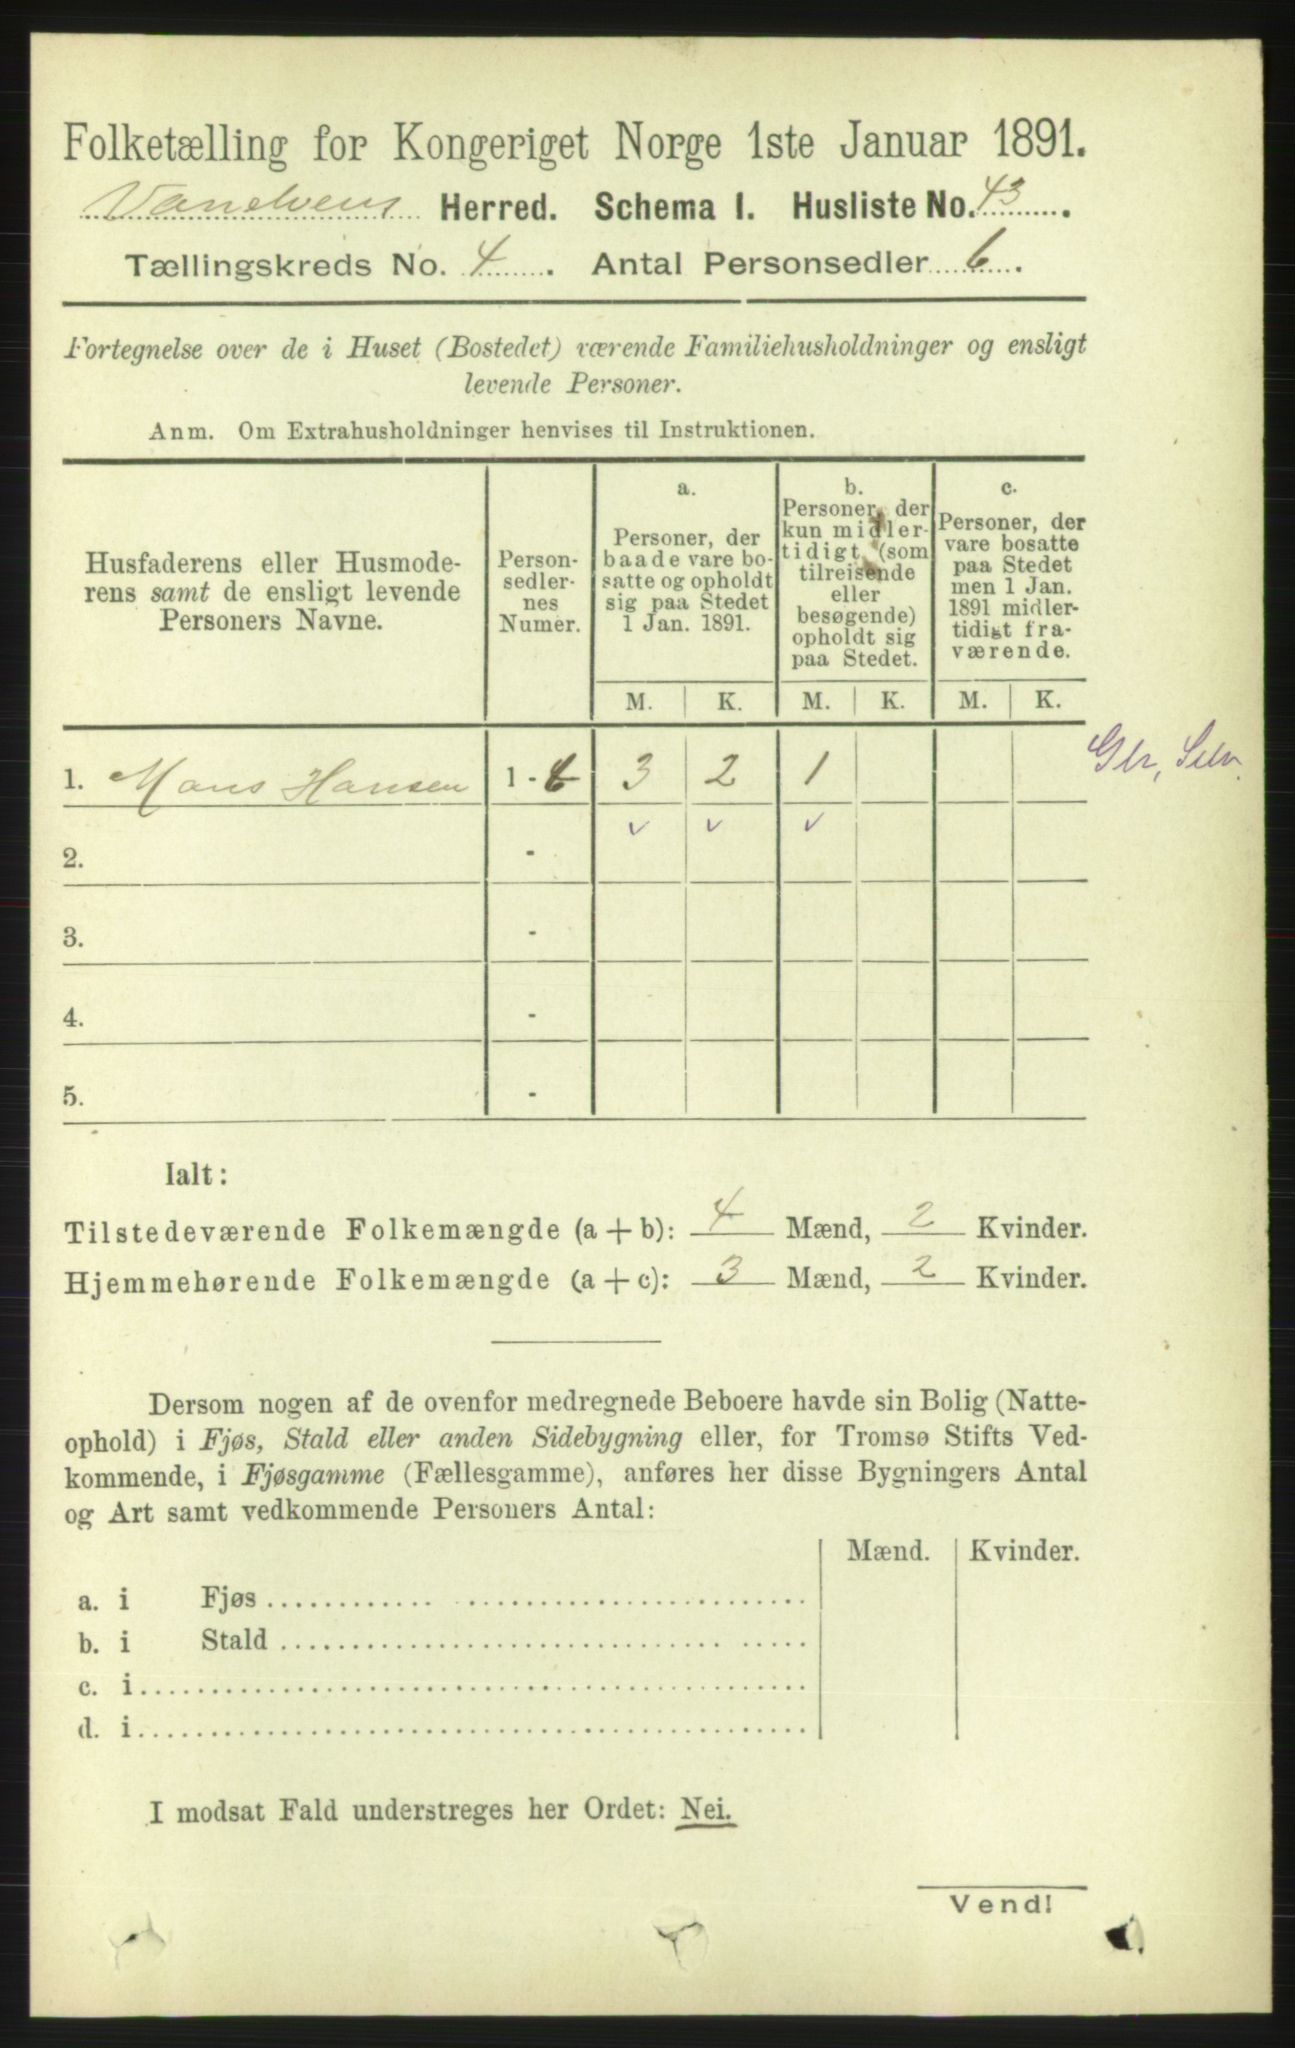 Folketælling for Kongeriget Norge 1ste Januar 1891.
Vanelvens Herred. Schema I. Husliste No. 43.
Tællingskreds No. 4. Antal Personsedler 6.
Fortegnelse over de i Huset (Bostedet) værende Familiehusholdninger og ensligt
levende Personer.
Anm. Om Extrahusholdninger henvises til Instruktionen.
Husfaderens eller Husmode-
rens samt de ensligt levende
Personers Navne.
Person-
sedler-
nes
Numer.
a.
Personer, der
baade vare bo-
satte og opholdt
sig paa Stedet
1 Jan. 1891.
b.
Personer, der
kun midler-
tidigt (som
tilreisende
eller
besøgende)
opholdt sig
paa Stedet.
c.
Personer, der
vare bosatte
paa Stedet
men 1 Jan.
1891 midler-
tidigt fra-
værende.
M. K. M. K. M. K.
1. Mons Hansen 1 - 6 3 2 1
2. -
3. -
4. -
5. -
Ialt:
Tilstedeværende Folkemængde (a + b): 4 Mænd, 2 Kvinder.
Hjemmehørende Folkemængde (a + c): 3 Mænd, 2 Kvinder.
Dersom nogen af de ovenfor medregnede Beboere havde sin Bolig (Natte-
ophold) i Fjøs, Stald eller anden Sidebygning eller, for Tromsø Stifts Ved-
kommende, i Fjøsgamme (Fællesgamme), anføres her disse Bygningers Antal
og Art samt vedkommende Personers Antal:
Mænd. Kvinder.
a. i Fjøs
b. i Stald
c. i
d. i
I modsat Fald understreges her Ordet: Nei.
Vend!